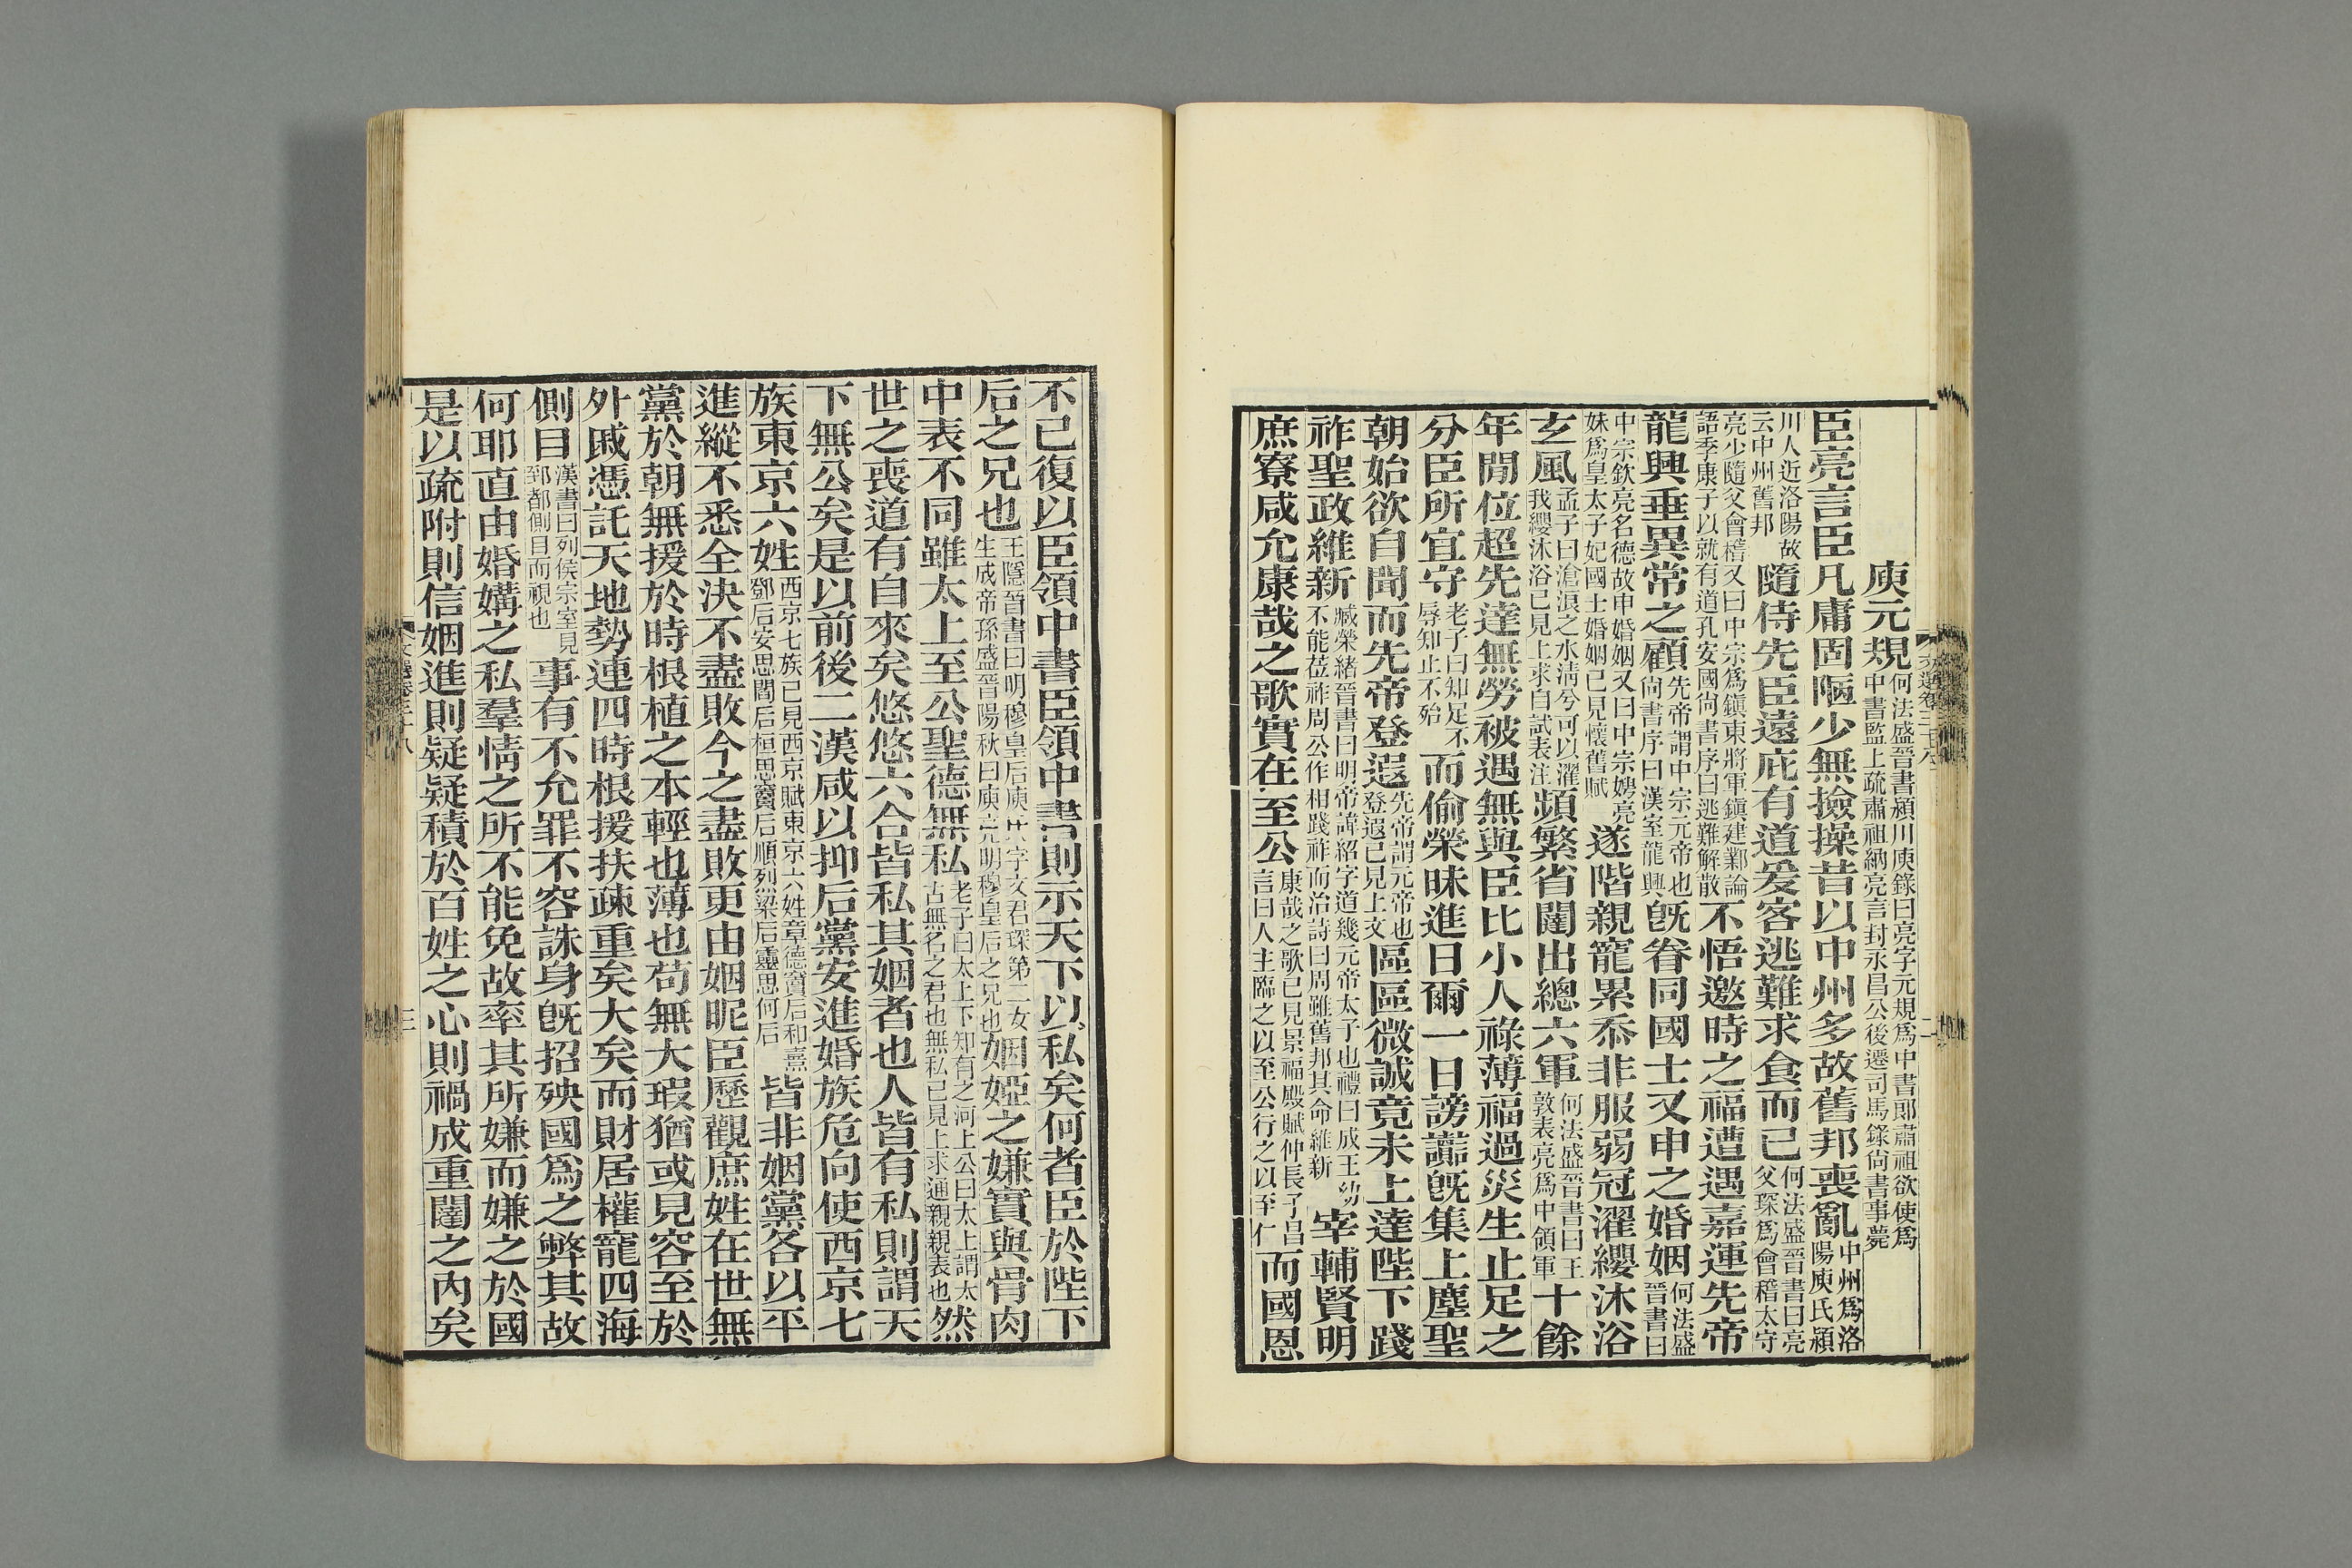 庾元規何法盛晉書潁川庾錄曰亮字元規爲中書郎肅祖欲使爲中書監上疏肅祖納亮言封永昌公後遷司馬錄尚書事薨
臣亮言臣凡庸固陋少無撿操昔以中州多故舊邦喪亂中州爲洛陽庾氏潁
川人近洛陽故云中州舊邦隨侍先臣遠庇有道爰客逃難求食而已何法盛晉書曰亮父琛爲會稽太守
亮少隨父會稽又曰中宗爲鎭東將軍鎭建鄴論語季康子以就有道孔安國尚書序曰逃難解散不悟邀時之福遭遇嘉運先帝
龍興垂異常之顧先帝謂中宗元帝也尚書序曰漢室龍興旣眷同國士又申之婚姻何法盛晉書曰
中宗欽亮名德故申婚姻又曰中宗娉亮妹爲皇太子妃國士婚姻已見懷舊賦遂階親寵累忝非服弱冠濯纓沐浴
玄風孟子曰滄浪之水淸兮可以濯我纓沐浴已見上求自試表注頻繁省闥出總六軍何法盛晉書曰王敦表亮爲中領軍十餘
年間位超先達無勞被遇無與臣比小人祿薄福過災生止足之
分臣所宜守老子曰知足不辱知止不殆而偷榮昧進日爾一日謗讟旣集上塵聖
朝始欲自聞而先帝登遐先帝謂元帝也登遐已見上文區區微誠竟未上達陛下踐
祚聖政維新臧榮緒晉書曰明帝諱紹字道幾元帝太子也禮曰成王幼不能莅祚周公作相踐祚而治詩曰周雖舊邦其命維新宰輔賢明
庶寮咸允康哉之歌實在至公康哉之歌已見景福殿賦仲長子昌言曰人主臨之以至公行之以至仁而國恩
不已復以臣領中書臣領中書則示天下以私矣何者臣於陛下
后之兄也王隱晉書曰明穆皇后庾氏字文君琛第二女生成帝孫盛晉陽秋曰庾亮明穆皇后之兄也姻婭之嫌實與骨肉
中表不同雖太上至公聖德無私老子曰太上下知有之河上公曰太上謂太古無名之君也無私已見上求通親親表也然
世之喪道有自來矣悠悠六合皆私其姻者也人皆有私則謂天
下無公矣是以前後二漢咸以抑后黨安進婚族危向使西京七
族東京六姓西京七族已見西京賦東京六姓章德竇后和熹鄧后安思閻后桓思竇后順烈梁后靈思何后皆非姻黨各以平
進縱不悉全決不盡敗今之盡敗更由姻昵臣歷觀庶姓在世無
黨於朝無援於時根植之本輕也薄也苟無大瑕猶或見容至於
外戚憑託天地勢連四時根援扶疎重矣大矣而財居權寵四海
側目漢書曰列侯宗室見郅都側目而視也事有不允罪不容誅身旣招殃國爲之弊其故
何耶直由婚媾之私羣情之所不能免故率其所嫌而嫌之於國
是以疏附則信姻進則疑疑積於百姓之心則禍成重闥之內矣